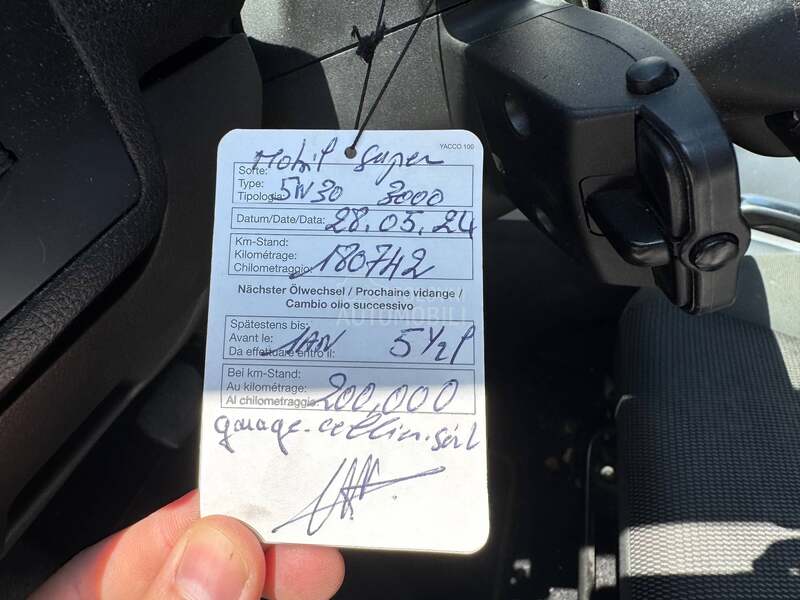 YACCO 100
Mobil Super
Sorte:
Type: 5W30 3000
Tipologia:
Datum/Date/Data: 28.05.24
Km-Stand:
Kilométrage: 180742
Chilometraggio:
Nächster Ölwechsel / Prochaine vidange /
Cambio olio successivo
AUTOMOBILI
Spätestens bis:
Avant le: 1AN 5 1/2 l
Da effettuare entro il:
Bei km-Stand:
Au kilométrage: 200,000
Al chilometraggio:
garage